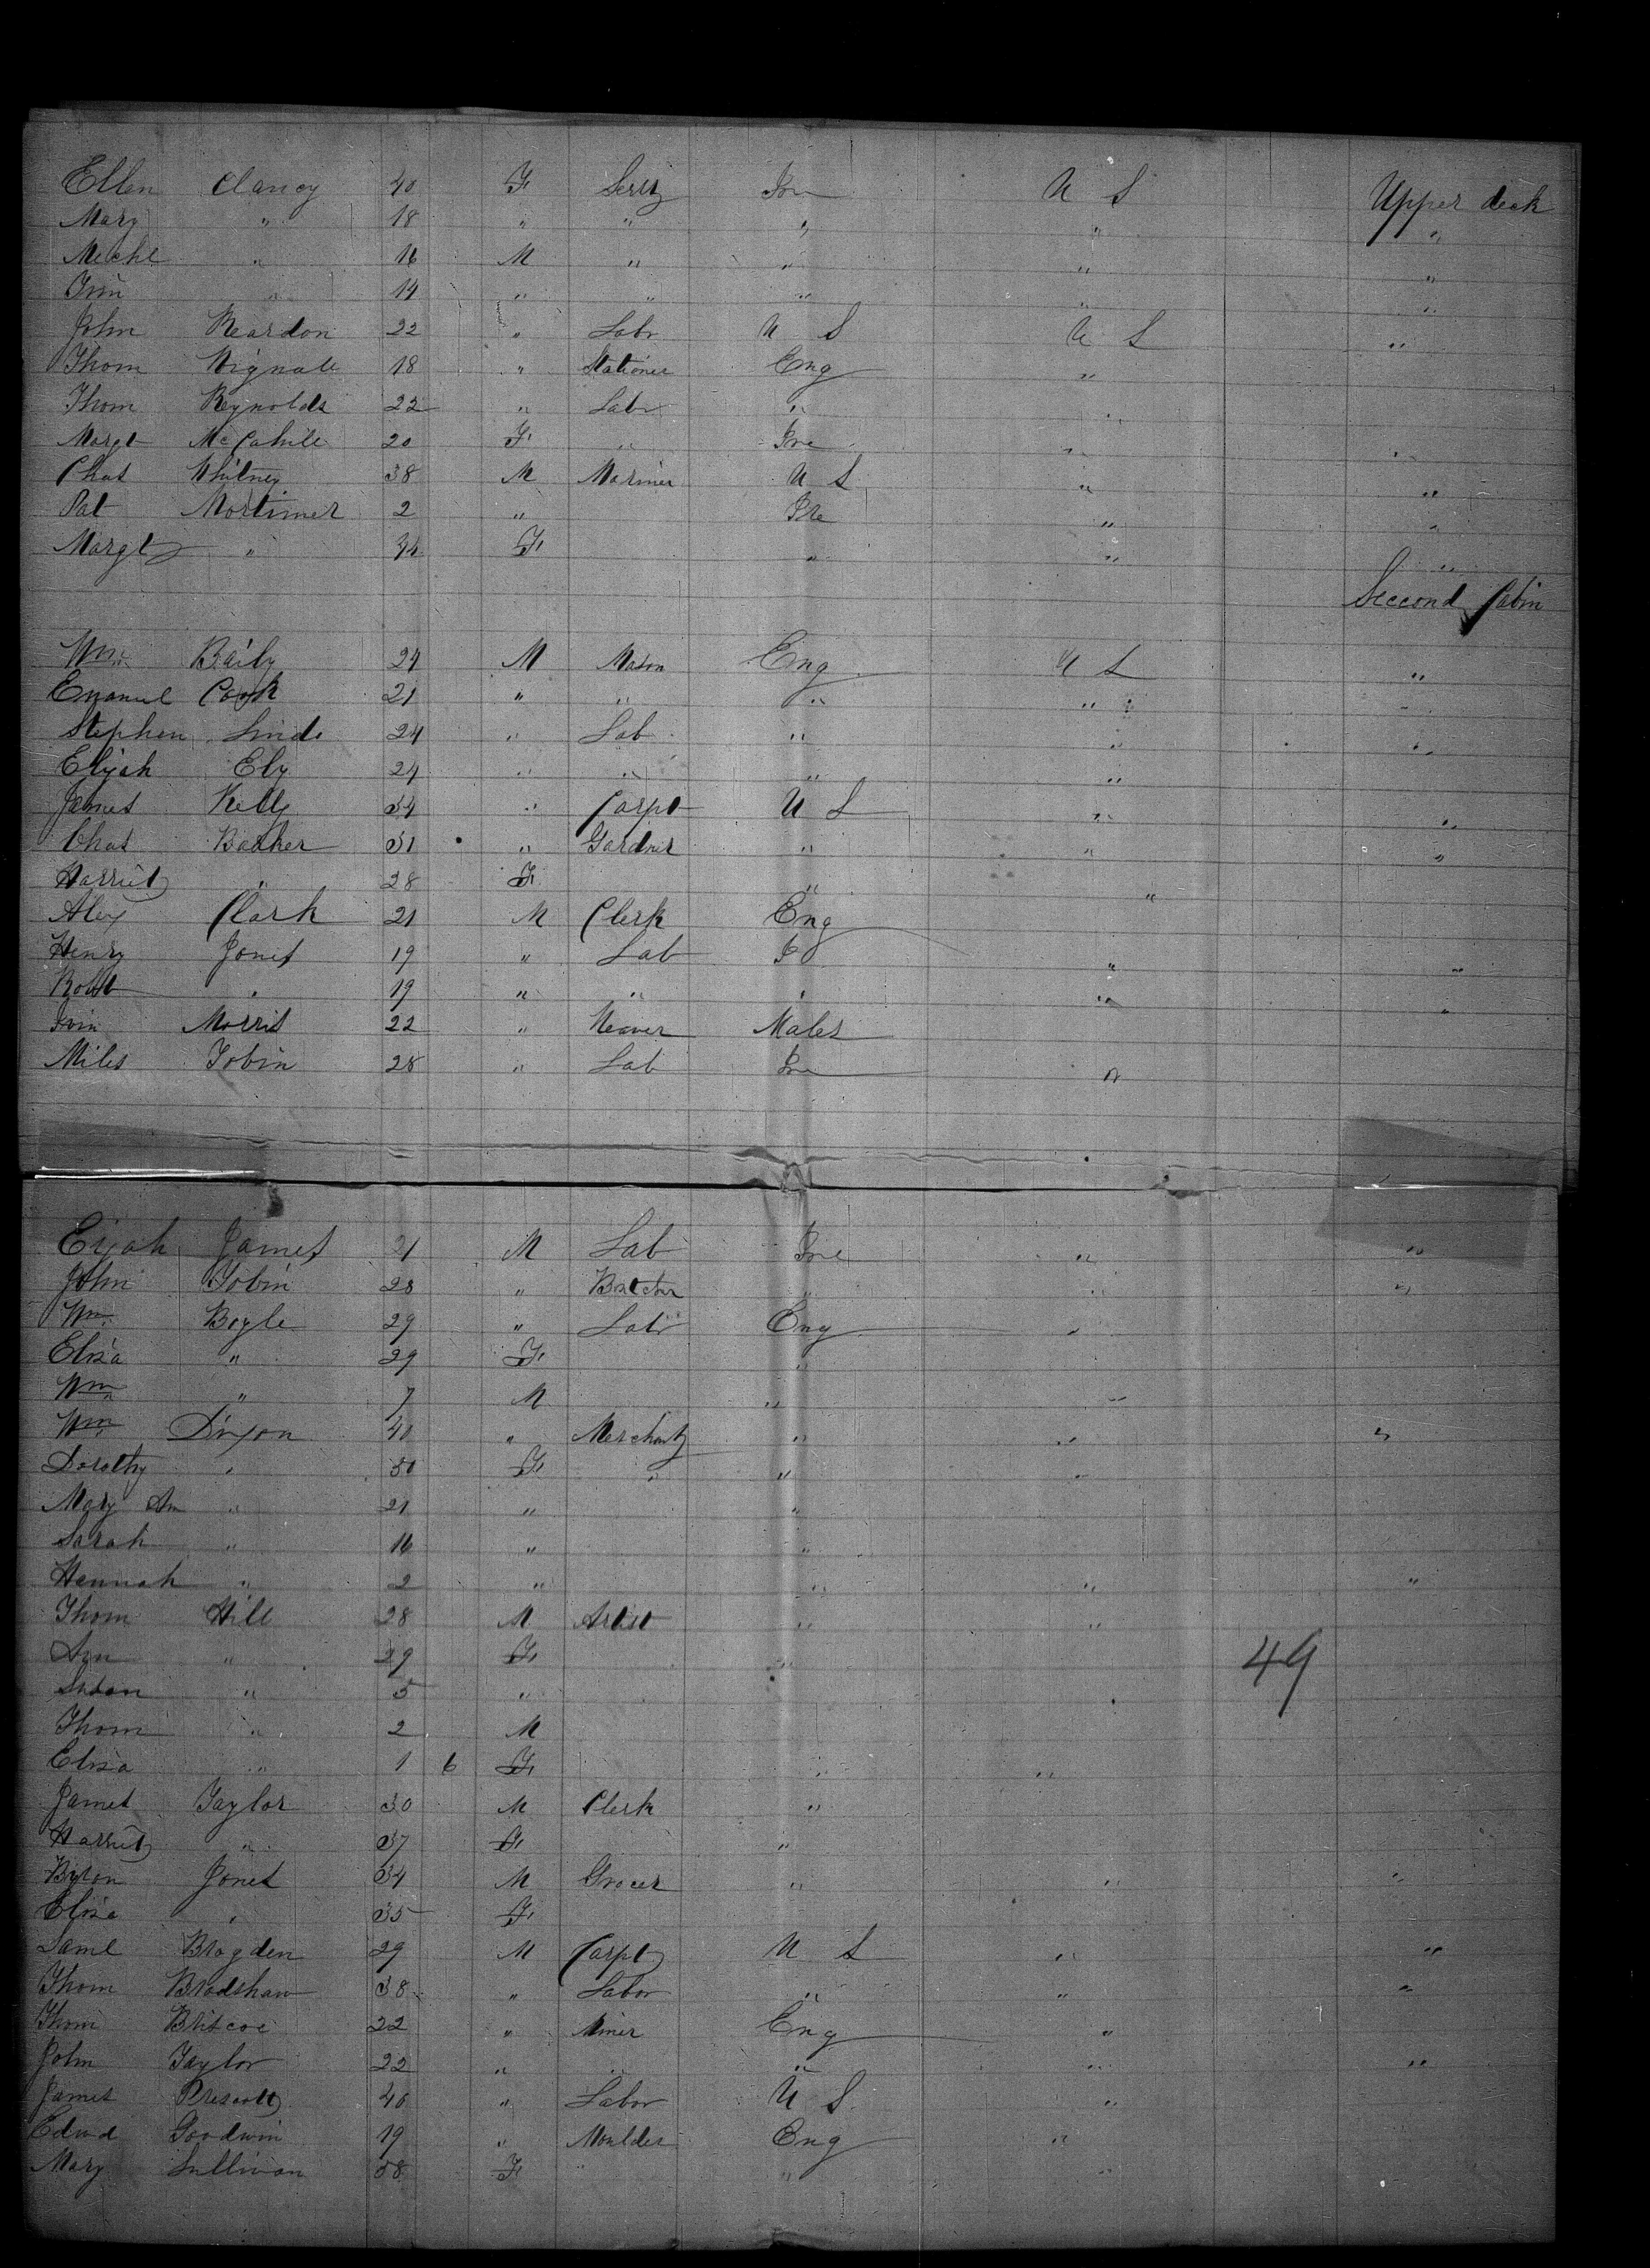 Ellen Clancy 40 F Ire U S Upper deck
Mary " 18 " " " " "
Michl " 16 M " " " "
" 14 " " " " "
John Reardon 22 " Labr U S U S "
Thom 18 " Stationer Eng "
Thom Reynolds 22 " Labr " " "
Margt McCahill 20 F " Ire " "
Chas Whitney 38 M Mariner U S " "
Pat Mortimer 2 " Ire " "
Margt " 34 F " " "
Seccond Cabin
Wm Baily 24 M Mason Eng U S "
Emanuel Cook 21 " " " " "
Stephen 24 " Lab " " "
Elijah Ely 24 " " " "
James Kelly 34 " Carpt U S " "
Chas Barker 31 " Gardner " " "
Harriet " 28 F " "
Alex Clark 21 M Clerk Eng
Henry Jones 19 " Lab " "
Robt " 19 " " " " "
Morris 22 " Weaver Wales
Miles Tobin 28 " Lab Ire "
Eijah James 21 M Lab Ire " "
John Tobin 28 " Butchr " " "
Wm Boyle 29 " Labr Eng "
Eliza " 29 F "
Wm " 7 M " "
Wm Dixon 40 " Merchant " " "
Dorothy " 50 F " " "
Mary Ann " 21 " "
Sarah " 16 " "
Hannah " 2 " " " "
Thom Hill 28 M Artist " "
Ann " 29 F " 49
Susan " 5 "
Thom " 2 M
Eliza " 1 6 F " "
James Taylor 30 M Clerk "
Harriet " 37 F "
Byron Jones 34 M Grocer " " "
Eliza " 35 F
Saml Brogden 29 M Carpt U S " "
Thom Bradshaw 38 " Labor " " "
Thom Briscoe 22 " Miner Eng "
John Taylor 22 " " " " "
James Prescott 40 " Labor U S "
Edwd Goodwin 19 " Moulder Eng "
Mary Sullivan 58 F " " "